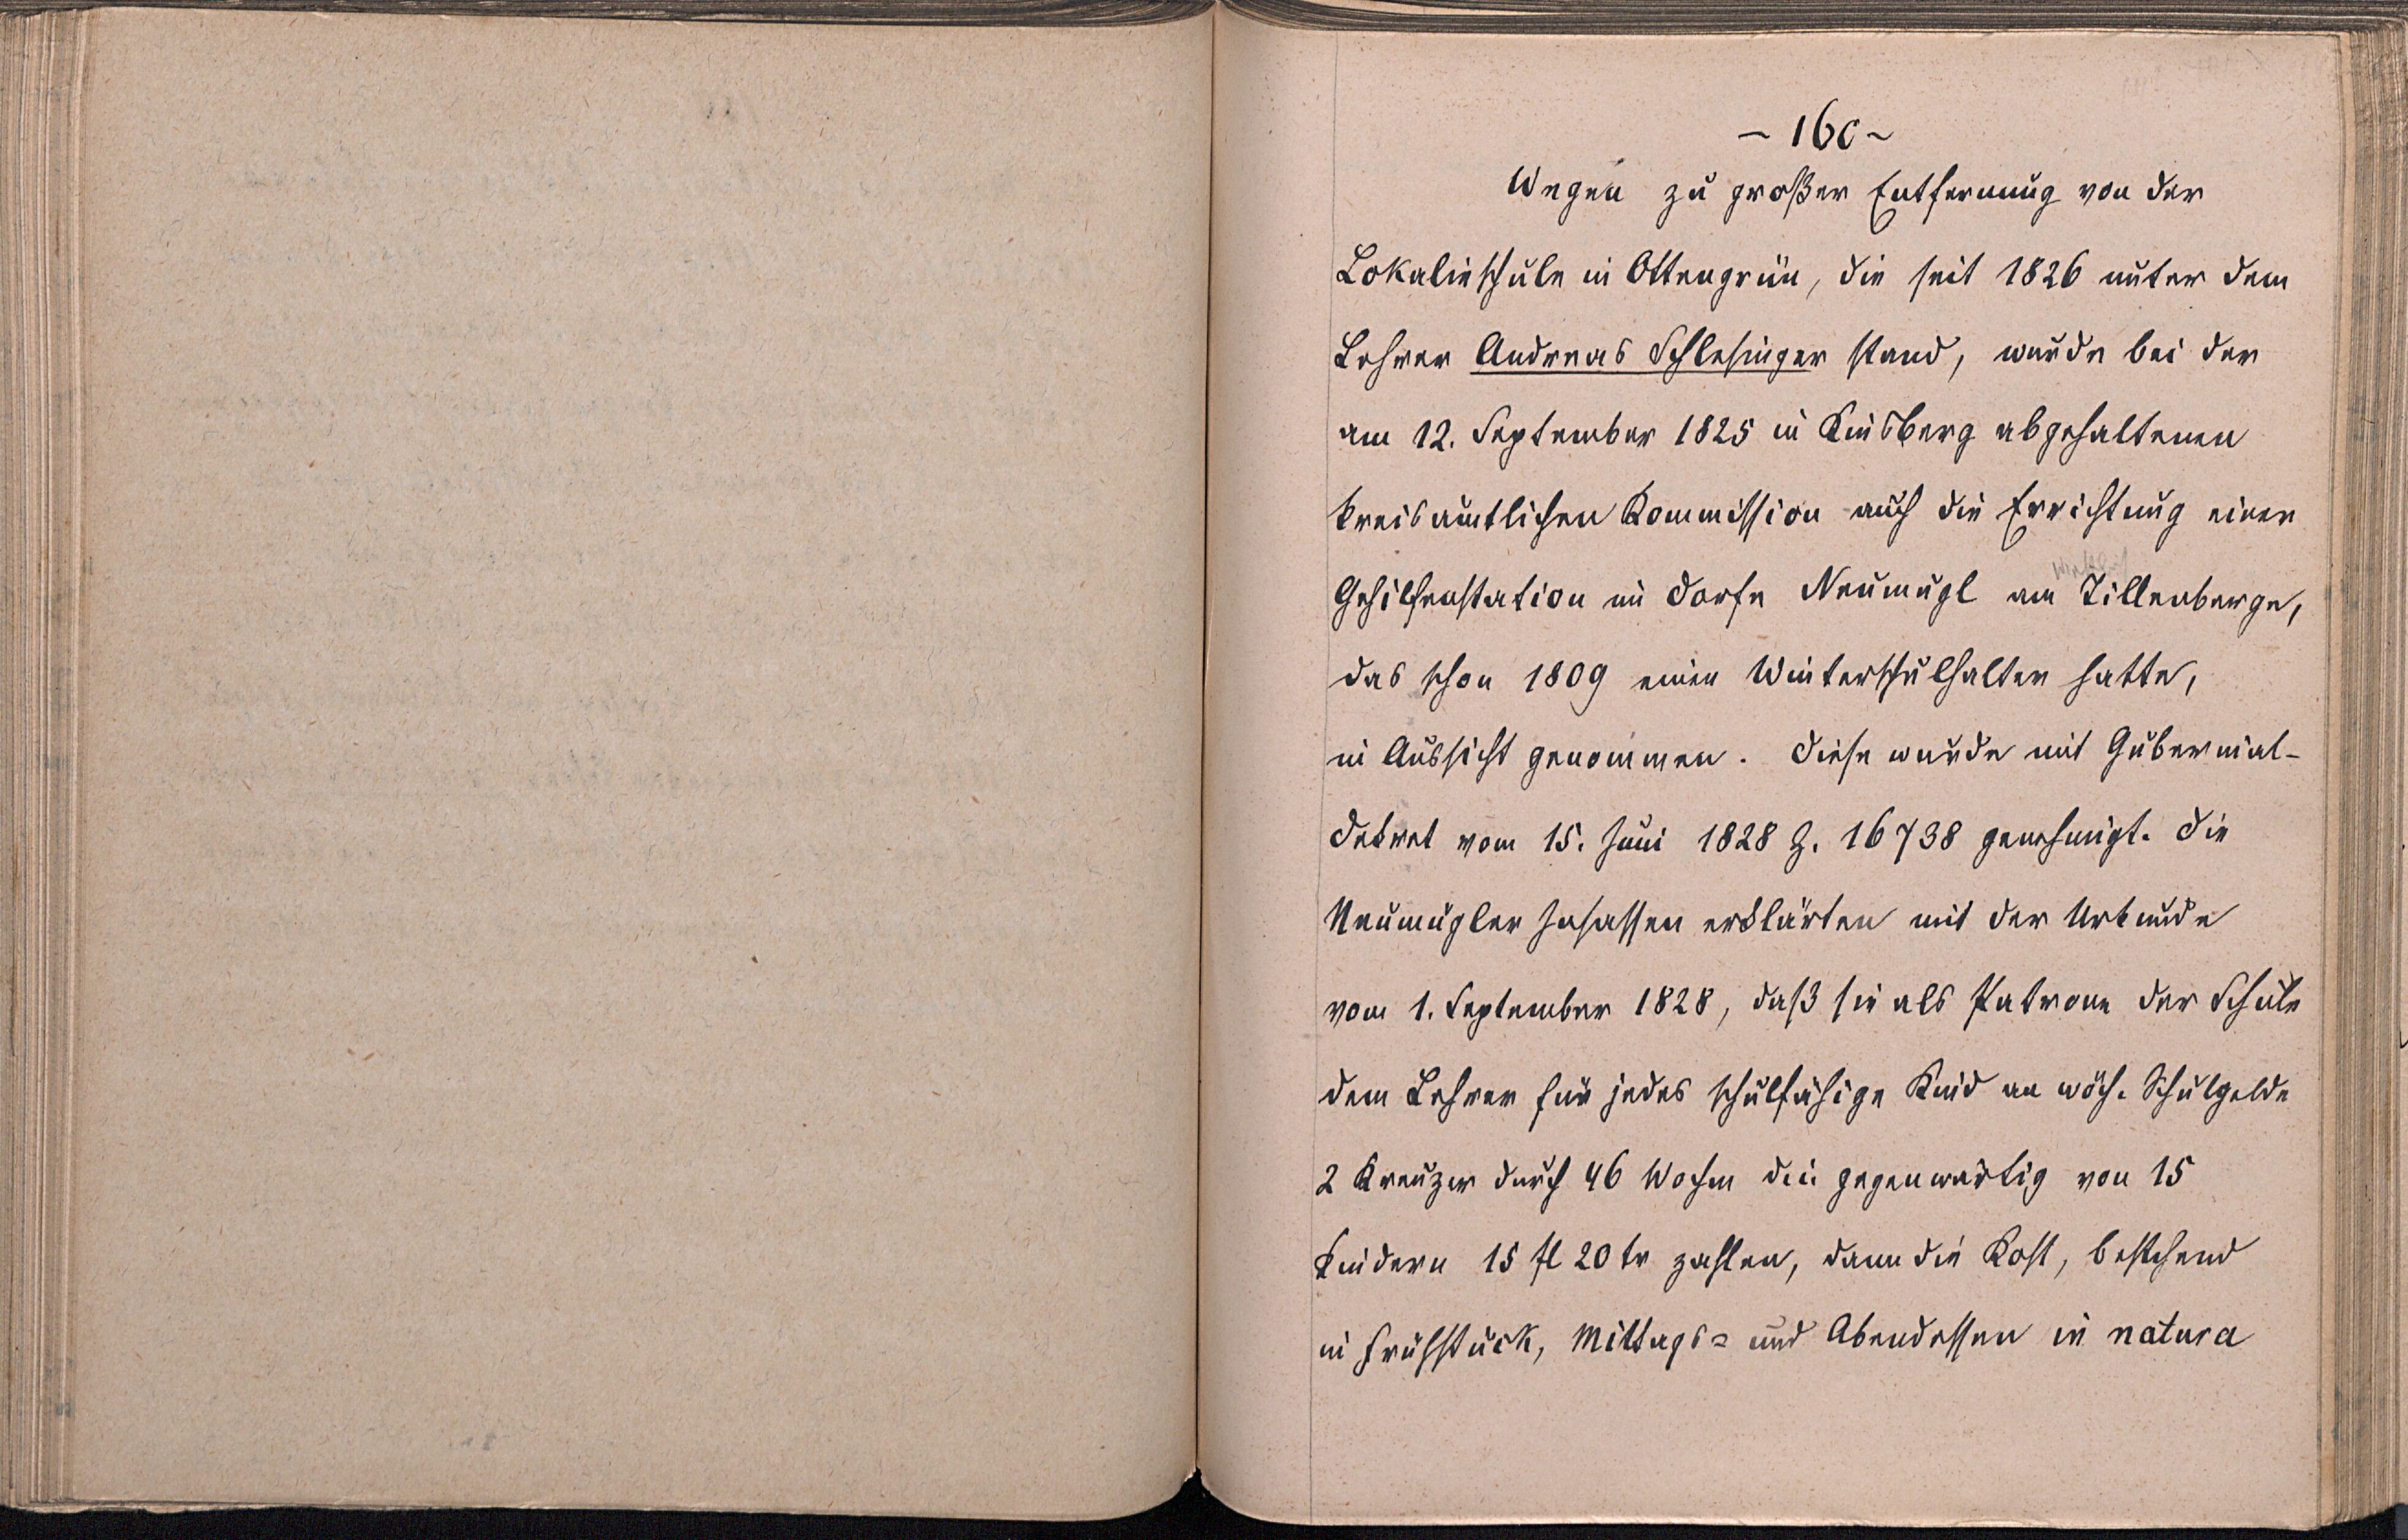 - 160 -
Wegen zu großer Entfernung von der
Lokalieschule in Ottengrün, die seit 1826 unter dem
Lehrer Andreas Schlesinger stand, wurde bei der
am 12. September 1825 in Kinsberg abgehaltenen
kreisämtlichen Kommission auch die Errichtung einer
Gehilfenstation im Dorfe Neumugl am Tillenberge,
das schon 1809 einen Winterschulhalter hatte,
in Aussicht genommen. Diese wurde mit Gubernial-
dekret vom 15. Juni 1828 Z. 16738 genehmigt. Die
Neumugler Insassen erklärten mit der Urkunde
vom 1. September 1828, daß sie als Patrone der Schule
dem Lehrer für jedes schulfähige Kind an wöch. Schulgelde
2 Kreuzer durch 46 Wochen die gegenwärtig von 15
Kindern 15 fl 20 kr zahlen, dann die Kost, bestehend
in Frühstück, Mittags= und Abendessen in natura